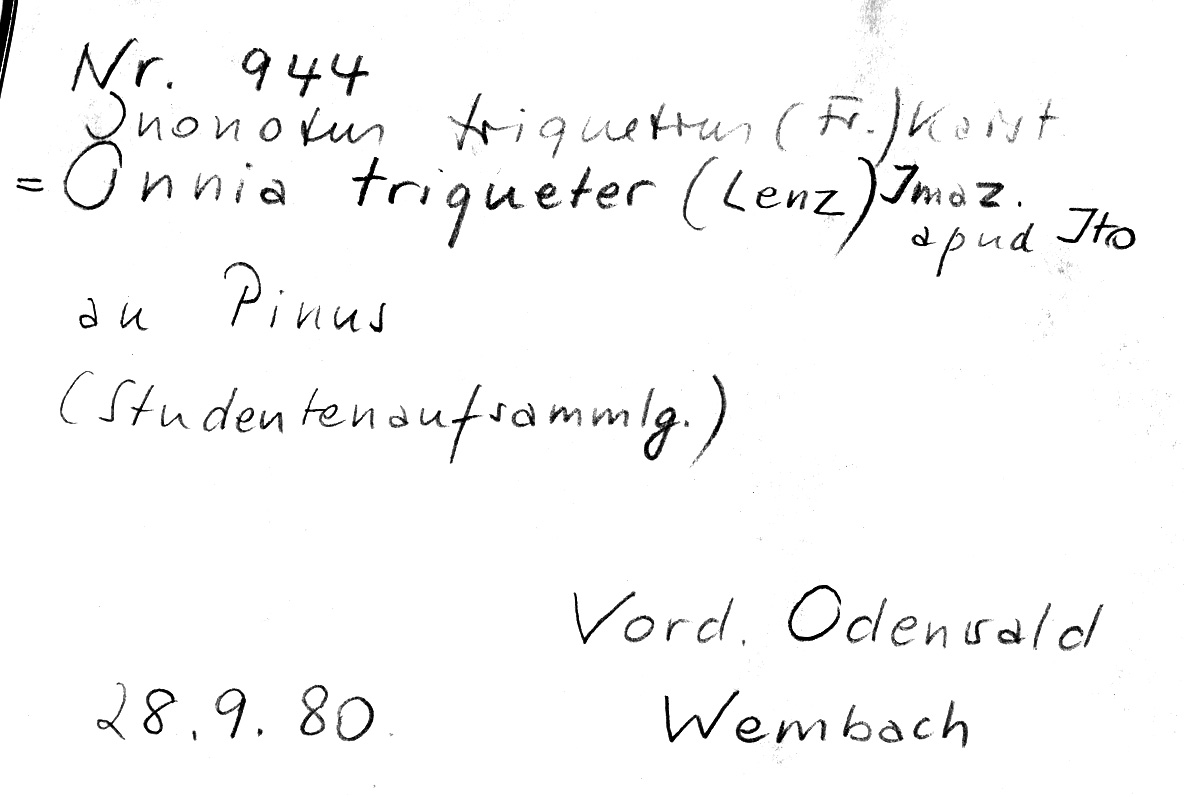 Nr. 944
Inonotus triquetrus (Fr.) Karst
= Onnia triqueter (Lenz) Imaz.
apud Ito
an Pinus
(Studentenaufsammlg.)
Vord. Odenwald
28.9.80. Wembach